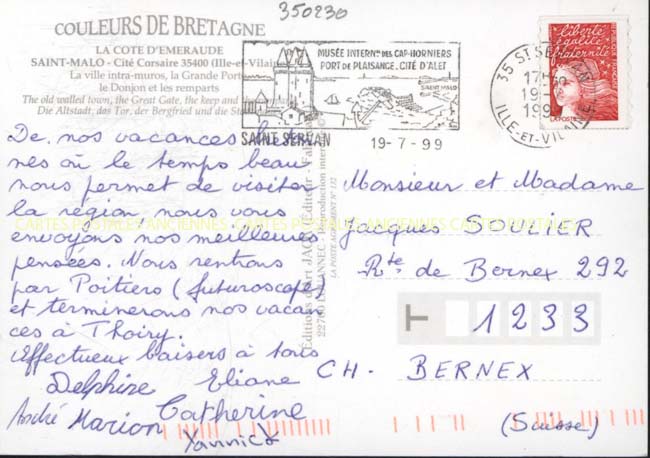 350230
COULEURS DE BRETAGNE
LA COTE D'EMERAUDE
SAINT-MALO - Cité Corsaire 35400 (Ille-et-Vilai
La ville intra-muros, la Grande Port
le Donjon et les remparts
The old walled town, the Great Gate, the keep and
Die Altstadt, das Tor, der Bergfried und die St
MUSÉE INTERN. DES CAP-HORNIERS
PORT DE PLAISANCE. CITÉ D'ALET
SAINT MALO
SAINT SERVAN
19-7-99
35 ST SERVAN
17H
19-
199
ILLE-ET-VILAINE
liberté
égalité
fraternité
LA POSTE
De nos vacances breton-
nes où le temps beau
nous permet de visiter
la région, nous vous
envoyons nos meilleures
pensées. Nous rentrons
par Poitiers (futuroscope)
et terminerons nos vacan
ces à Thoiry.
Affectueux baisers à tous
Delphine Eliane
André Marion Catherine
Yannick
Editions d'art JACK
LA POSTE AGREMENT N° 132
Monsieur et Madame
Jacques SOULIER
Rte de Bernex 292
1233
CH. BERNEX
(Suisse)
CARTES POSTALES ANCIENNES CARTES POSTALES ANCIENNES CARTES POSTALES